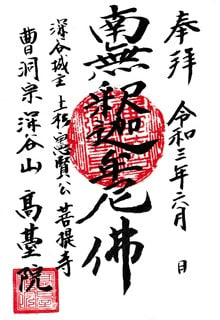 奉拝
令和三年六月 日
南無釈迦牟尼佛
深谷城主 上杉憲賢公 菩提寺
曹洞宗 深谷山 高臺院